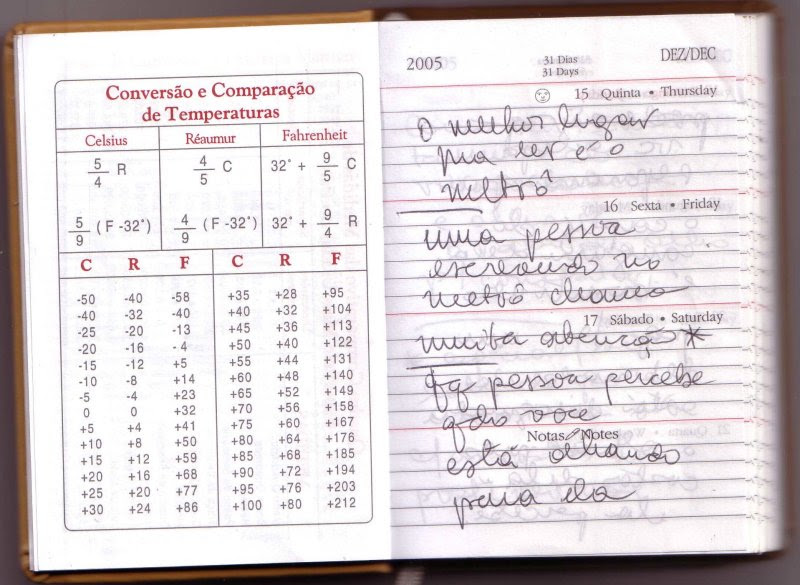 Conversão e Comparação
de Temperaturas
Celsius Réaumur Fahrenheit
5/4 R 4/5 C 32° + 9/5 C
5/9 ( F -32°) 4/9 ( F -32°) 32° + 9/4 R
C R F C R F
-50 -40 -58 +35 +28 +95
-40 -32 -40 +40 +32 +104
-25 -20 -13 +45 +36 +113
-20 -16 - 4 +50 +40 +122
-15 -12 +5 +55 +44 +131
-10 -8 +14 +60 +48 +140
-5 -4 +23 +65 +52 +149
0 0 +32 +70 +56 +158
+5 +4 +41 +75 +60 +167
+10 +8 +50 +80 +64 +176
+15 +12 +59 +85 +68 +185
+20 +16 +68 +90 +72 +194
+25 +20 +77 +95 +76 +203
+30 +24 +86 +100 +80 +212
2005 31 Dias DEZ/DEC
31 Days
15 Quinta • Thursday
O melhor lugar
pra ler é o
metrô
16 Sexta • Friday
uma pessoa
escrevendo no
metrô chama
17 Sábado • Saturday
muita atenção *
qq pessoa percebe
qdo você
Notas Notes
está olhando
para ela